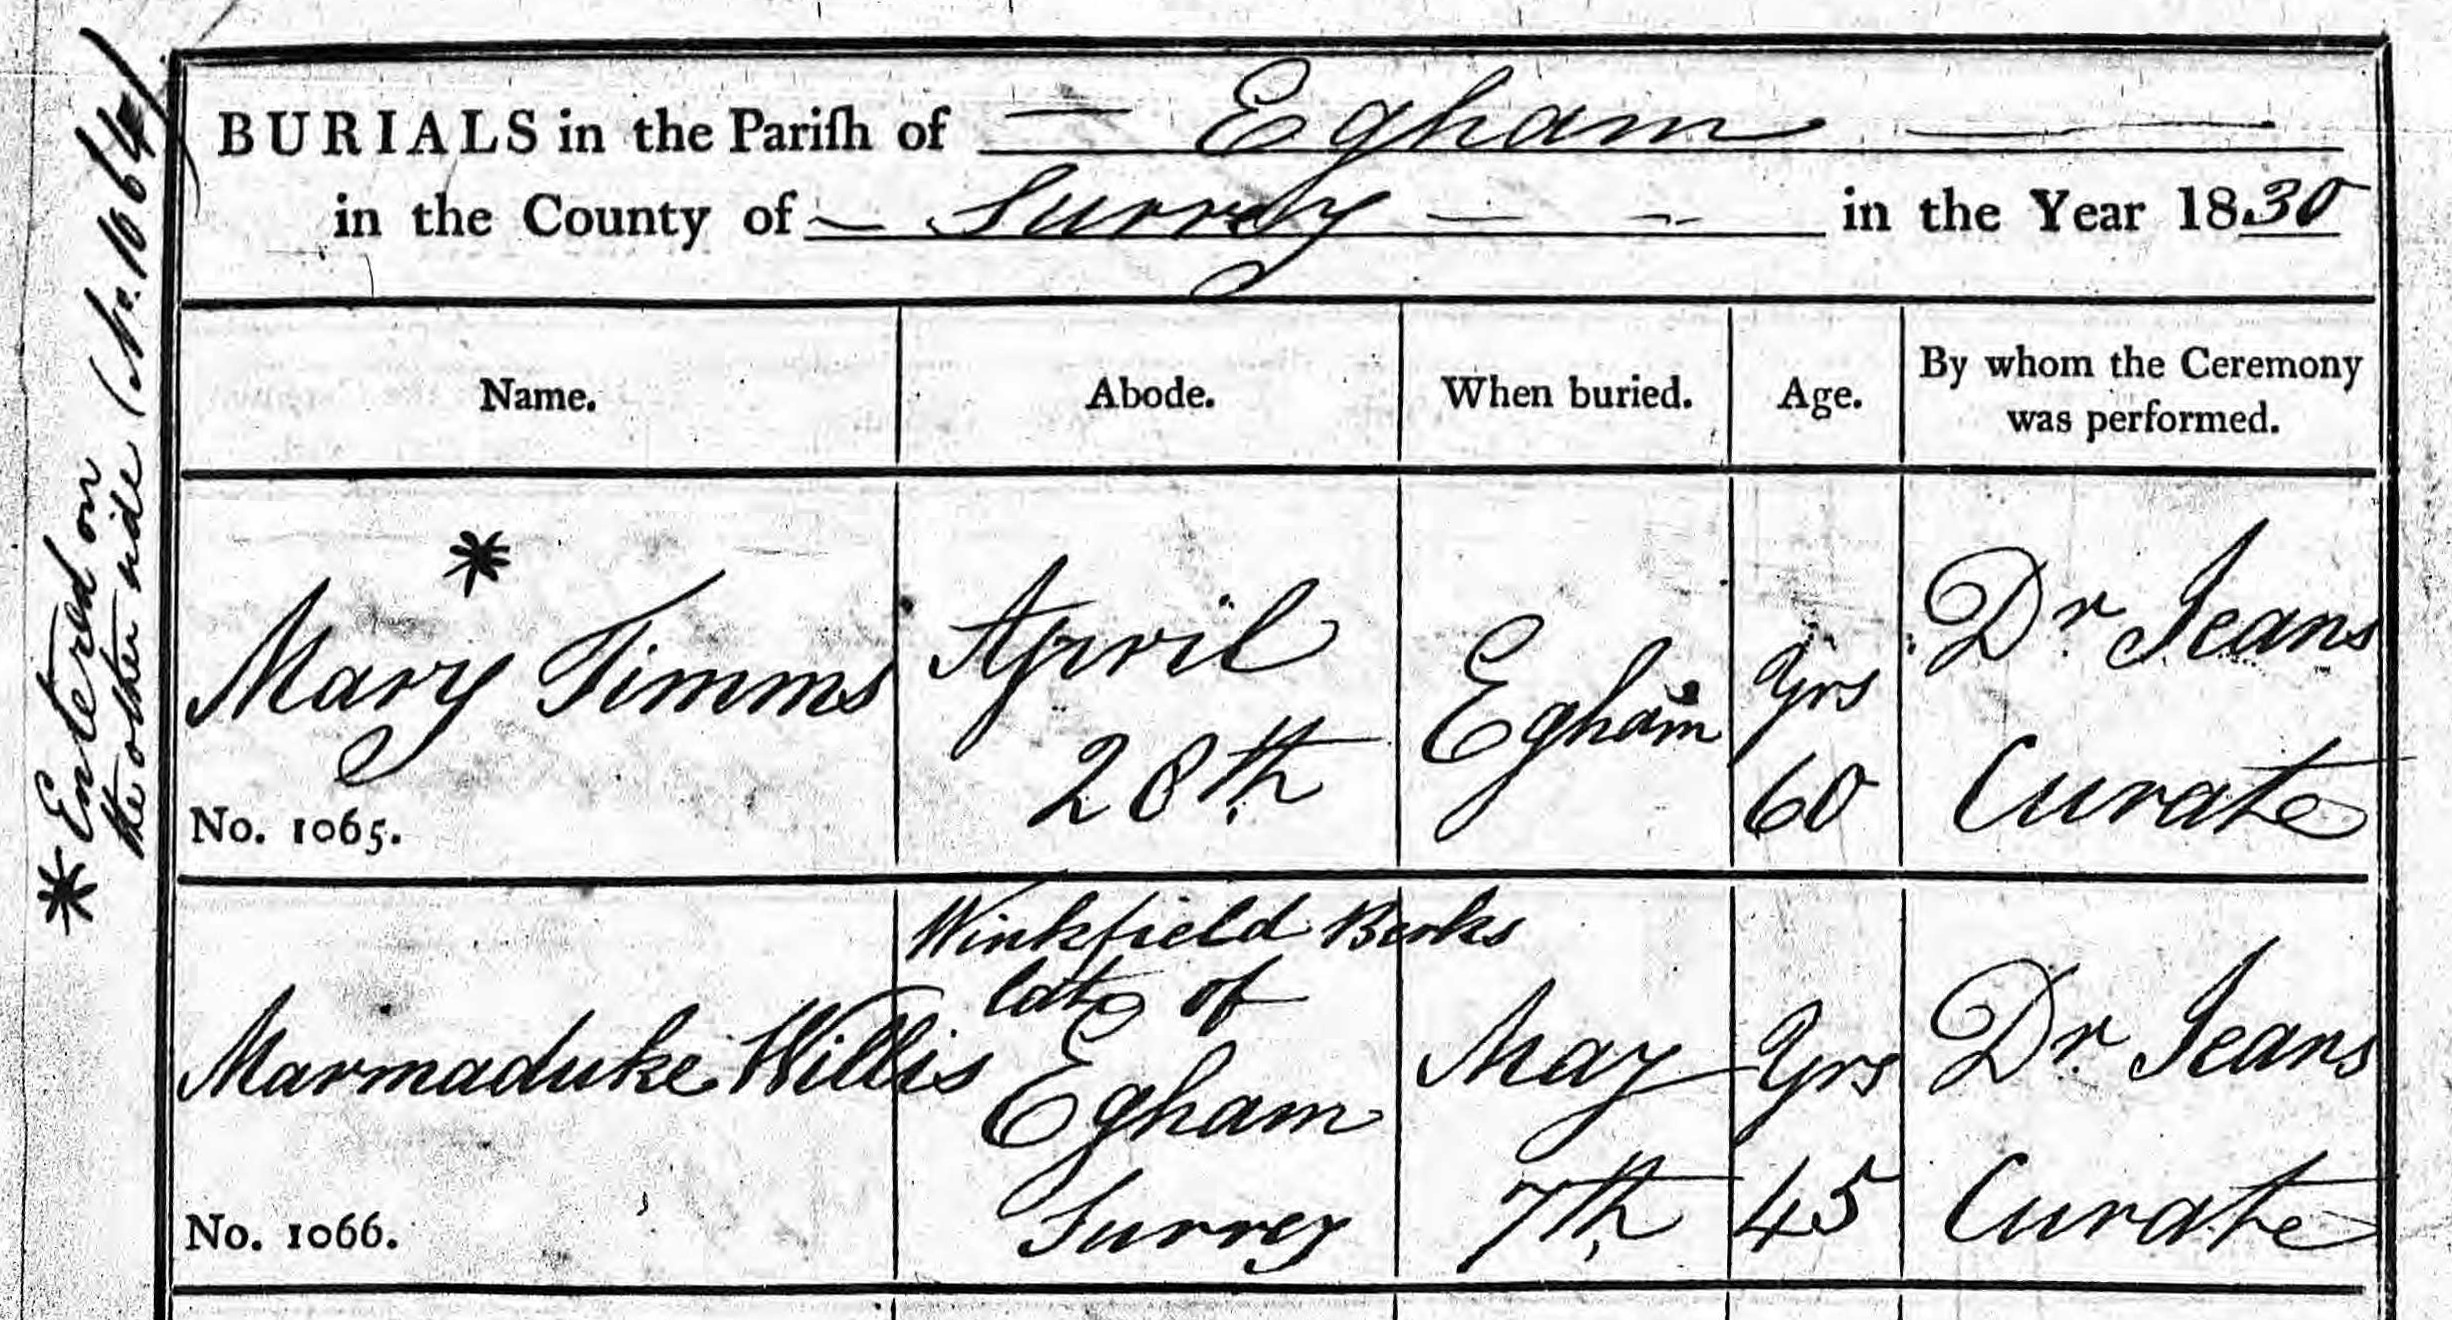 BURIALS in the Pariſh of Egham
in the County of Surrey in the Year 1830
Name. Abode. When buried. Age. By whom the Ceremony was performed.
* Entered on
the other side (No. 1064)
*
Mary Timms
No. 1065.
April
28th
Egham
Yrs
60
Dr Jeans
Curate
Marmaduke Willis
No. 1066.
Winkfield Berks
late of
Egham
Surrey
May
7th
Yrs
45
Dr Jeans
Curate